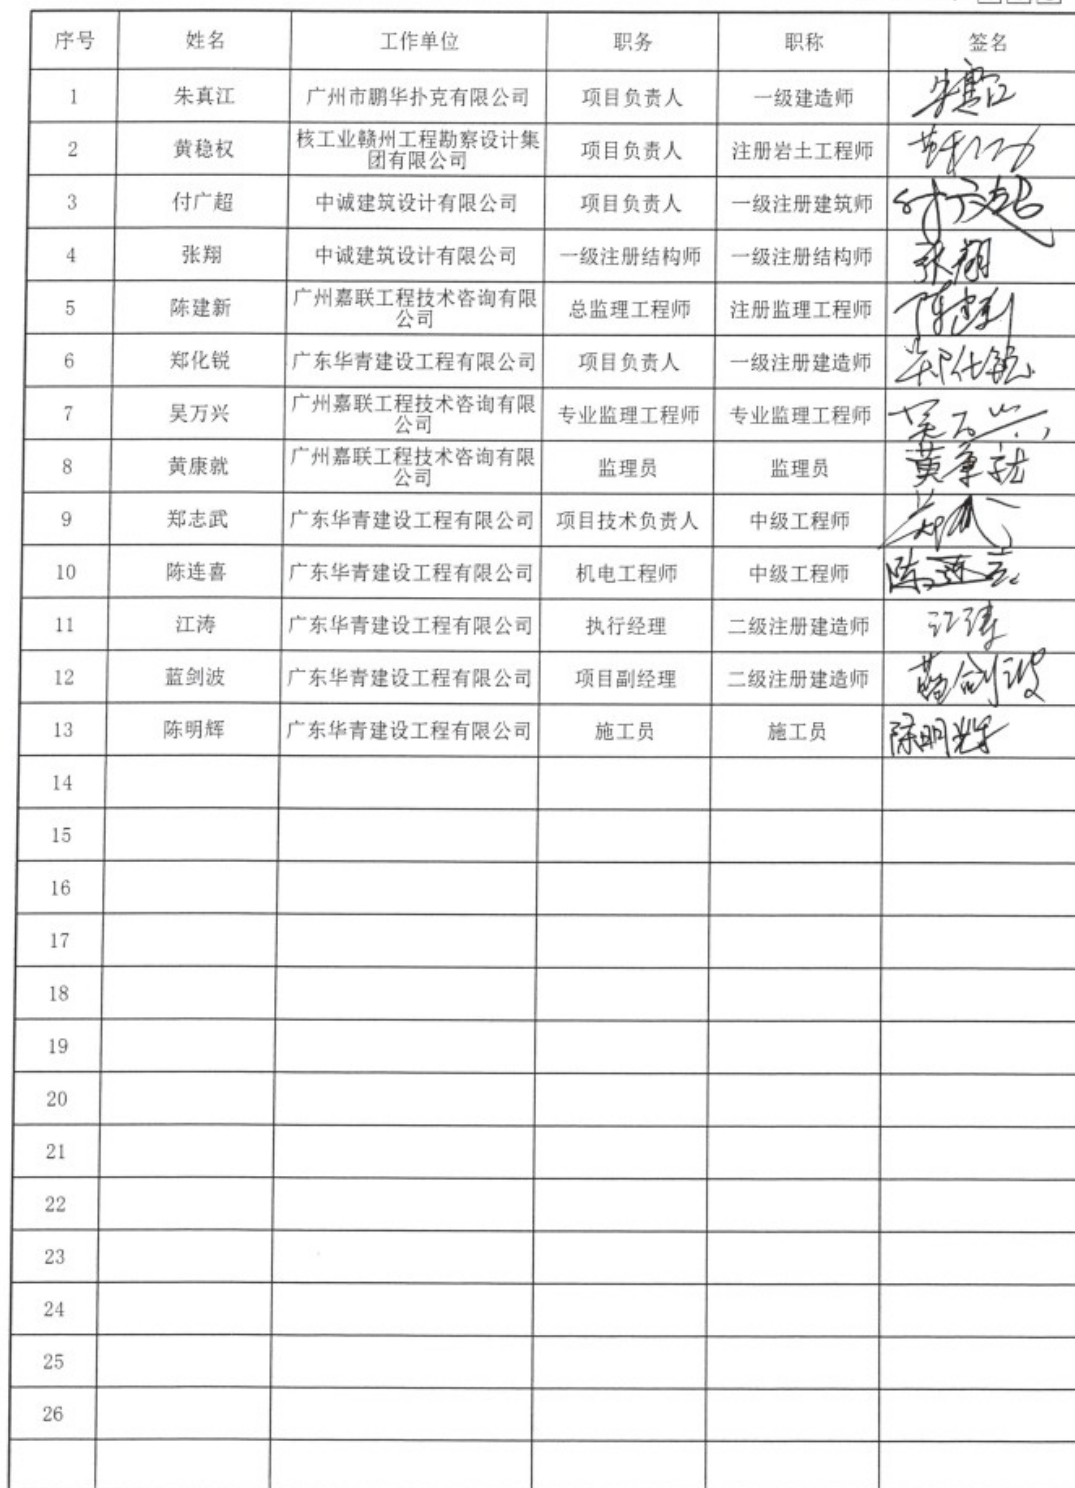 序号 姓名 工作单位 职务 职称 签名
1 朱真江 广州市鹏华扑克有限公司 项目负责人 一级建造师
2 黄稳权 核工业赣州工程勘察设计集
团有限公司 项目负责人 注册岩土工程师
3 付广超 中诚建筑设计有限公司 项目负责人 一级注册建筑师 付广超
4 张翔 中诚建筑设计有限公司 一级注册结构师 一级注册结构师 张翔
5 陈建新 广州嘉联工程技术咨询有限
公司 总监理工程师 注册监理工程师 陈建新
6 郑化锐 广东华青建设工程有限公司 项目负责人 一级注册建造师 郑化锐
7 吴万兴 广州嘉联工程技术咨询有限
公司 专业监理工程师 专业监理工程师 吴万兴
8 黄康就 广州嘉联工程技术咨询有限
公司 监理员 监理员 黄康就
9 郑志武 广东华青建设工程有限公司 项目技术负责人 中级工程师
10 陈连喜 广东华青建设工程有限公司 机电工程师 中级工程师 陈连喜
11 江涛 广东华青建设工程有限公司 执行经理 二级注册建造师 江涛
12 蓝剑波 广东华青建设工程有限公司 项目副经理 二级注册建造师 蓝剑波
13 陈明辉 广东华青建设工程有限公司 施工员 施工员 陈明辉
14
15
16
17
18
19
20
21
22
23
24
25
26